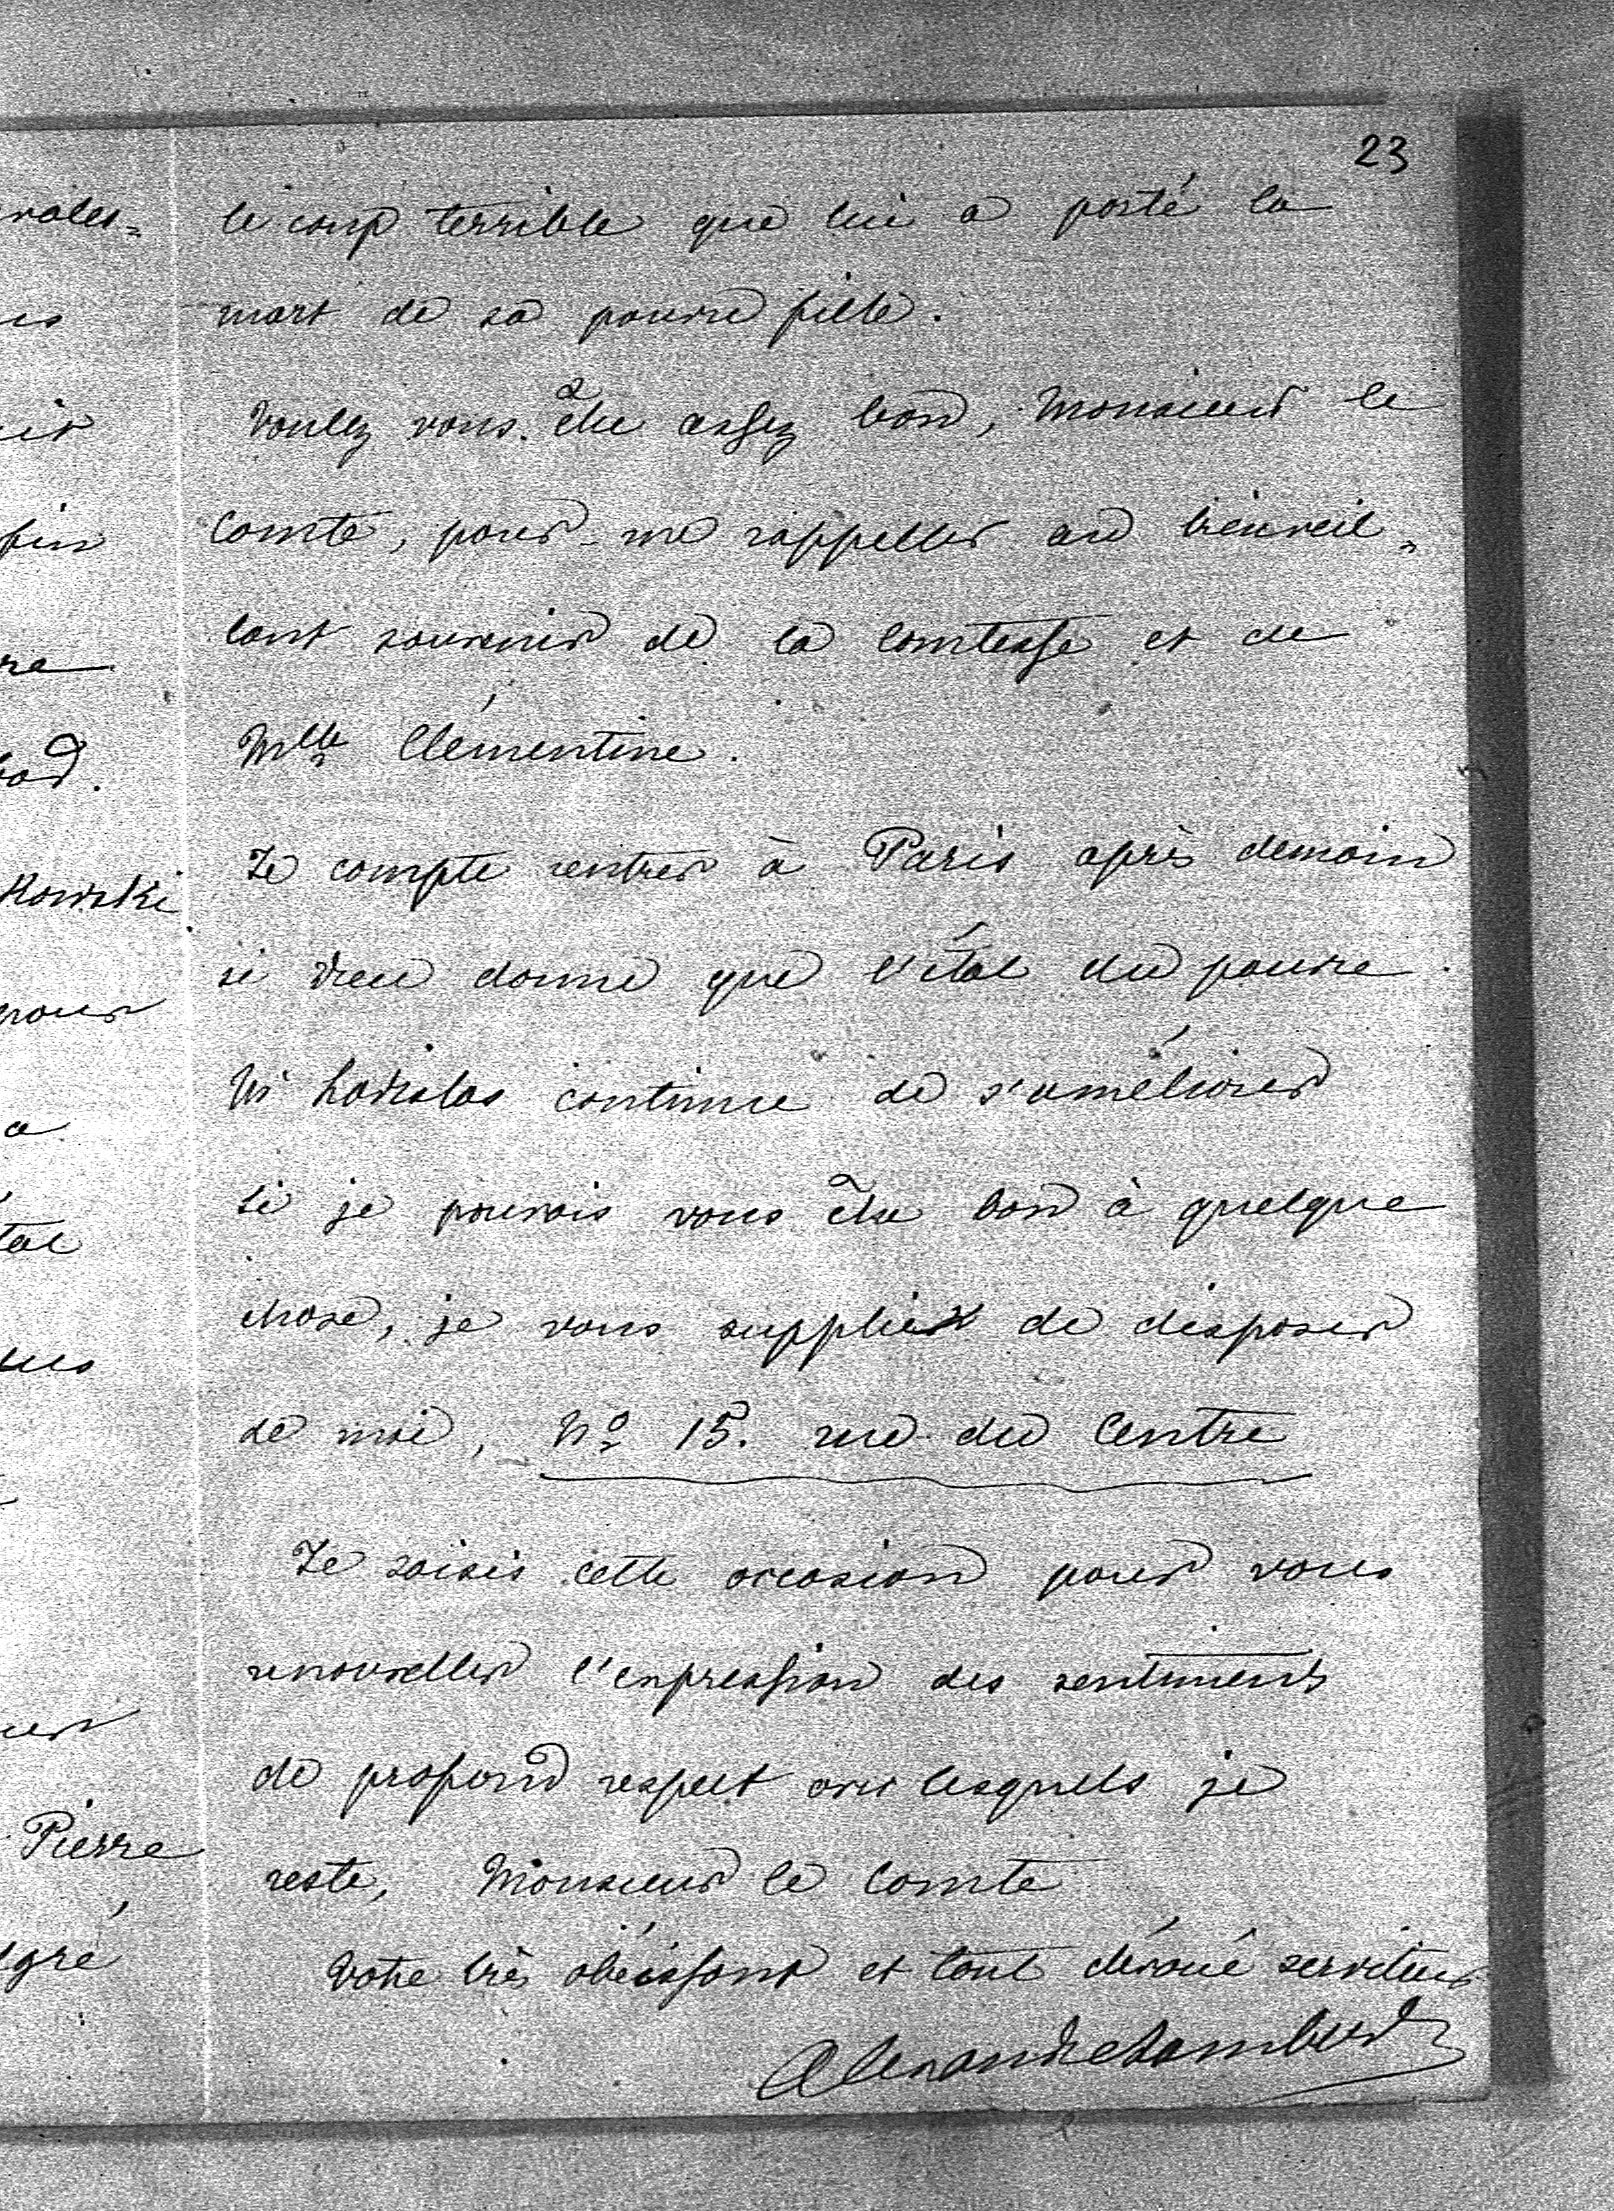 23
le coup terrible que lui a porté la
mort de sa pauvre fille.
Voulez vous être assez bon, Monsieur le
Comte, pour me rappeller au bienveil=
lant souvenir de la Comtesse et de
Mlle Clémentine.
Je compte rentrer à Paris après demain
si Dieu donne que l'état du pauvre
Mr Ladislas continue de s'améliorer
Si je pouvais vous être bon à quelque
chose, je vous supplie de disposer
de moi, No 15. rue du Centre
Je saisis cette occasion pour vous
renouveller l'expression des sentiments
de profond respect avec lesquels je
reste, Monsieur le Comte
Votre très obéissant et tout dévoué serviteur
Alexandre
rales=
fin
Pierre